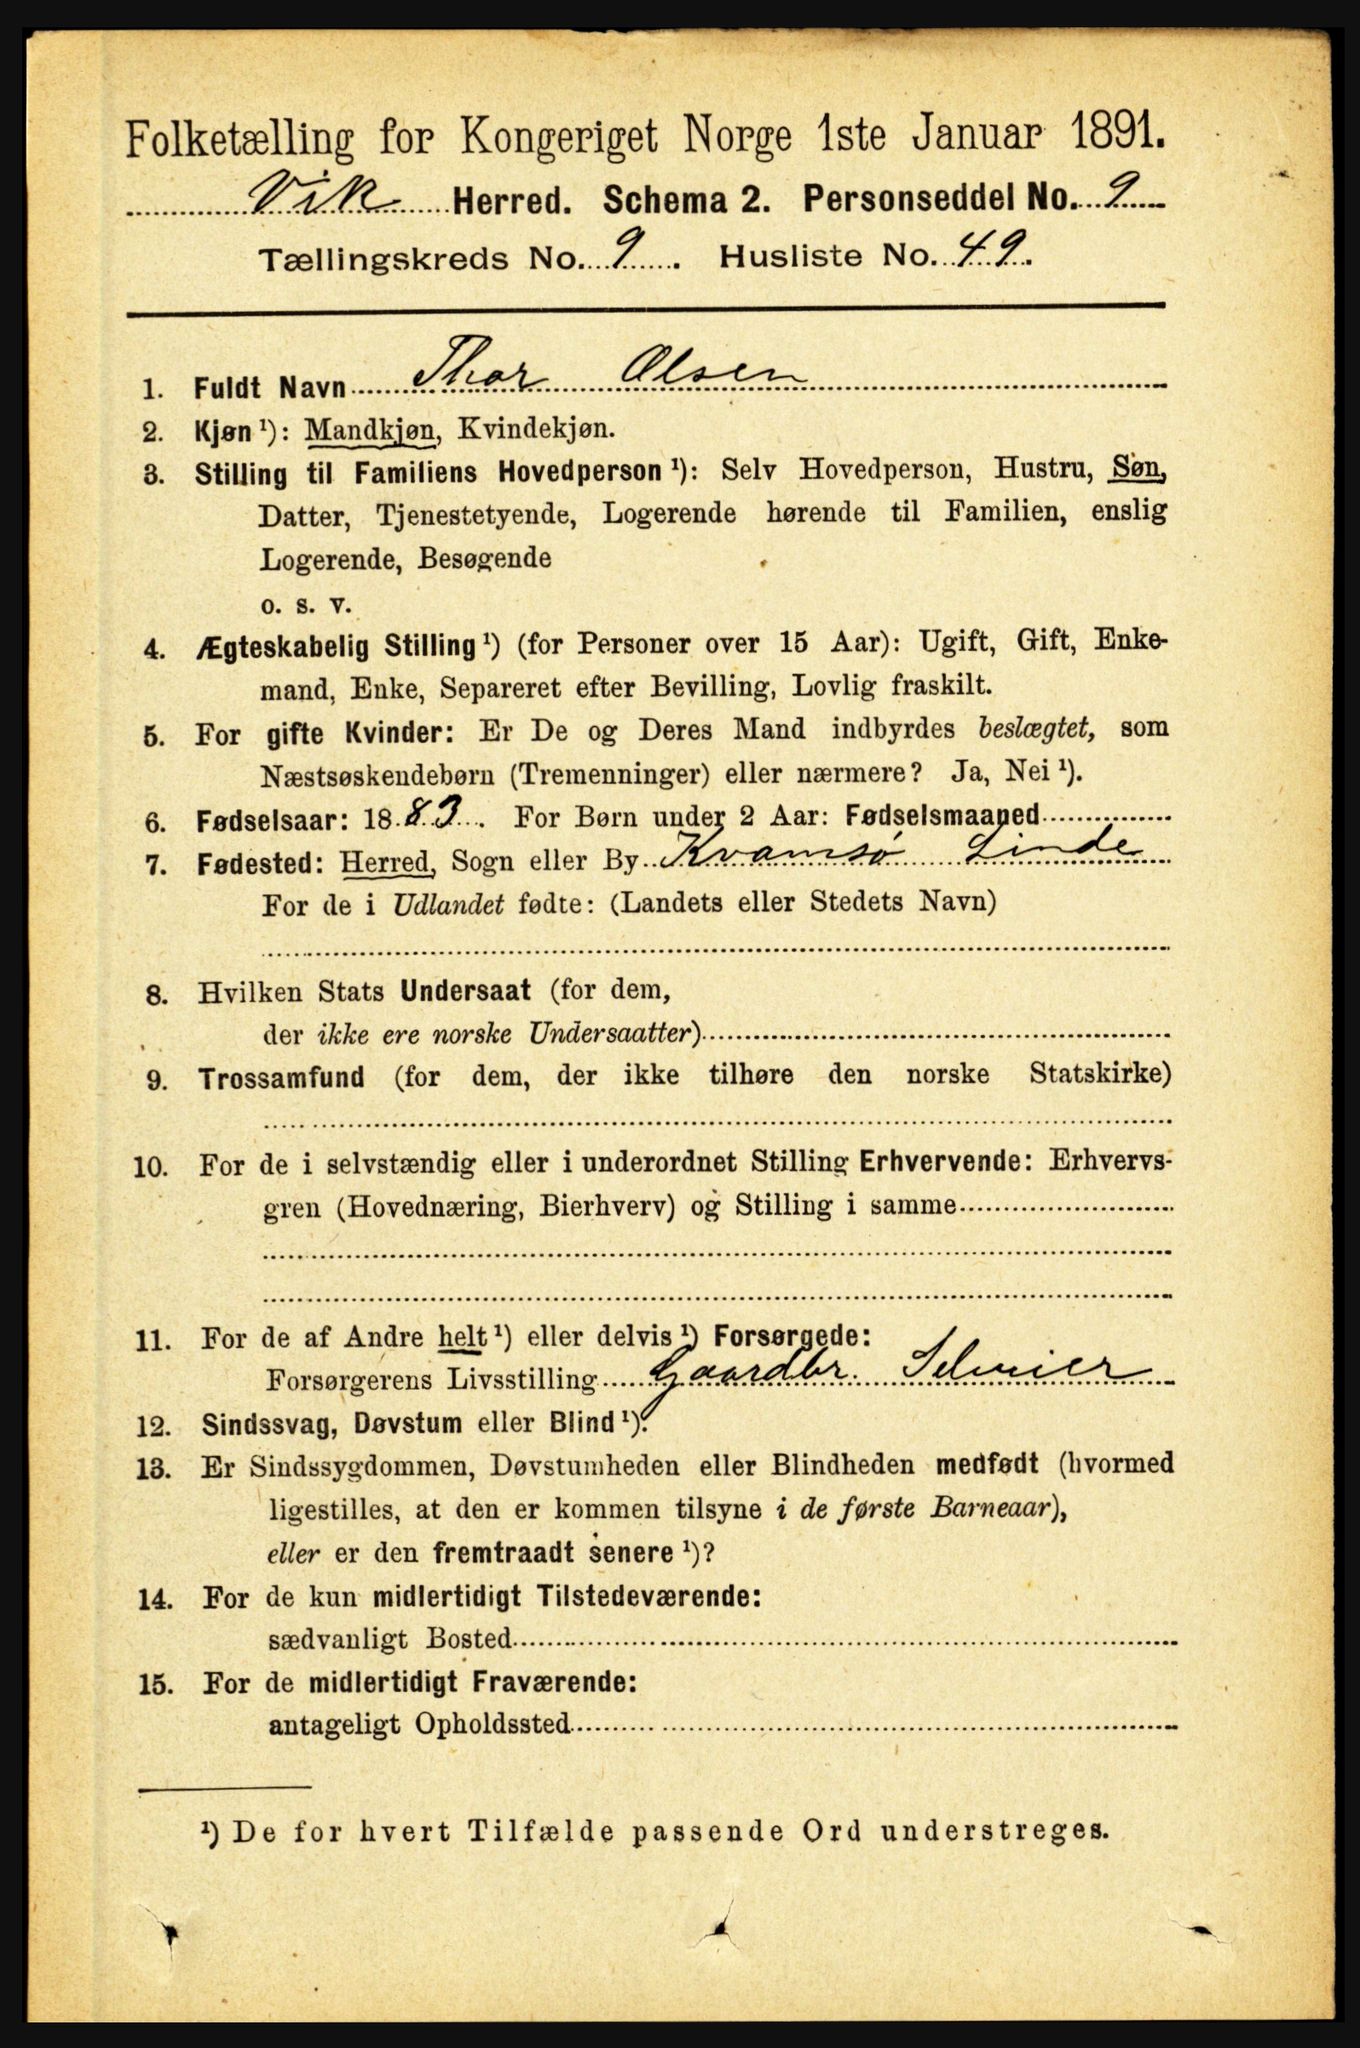 Folketælling for Kongeriget Norge 1ste Januar 1891.
Vik Herred. Schema 2. Personseddel No. 9
Tællingskreds No. 9. Husliste No. 49.
1. Fuldt Navn Thor Olsen
2. Kjøn ¹): Mandkjøn, Kvindekjøn.
3. Stilling til Familiens Hovedperson ¹): Selv Hovedperson, Hustru, Søn,
Datter, Tjenestetyende, Logerende hørende til Familien, enslig
Logerende, Besøgende
o. s. v.
4. Ægteskabelig Stilling ¹) (for Personer over 15 Aar): Ugift, Gift, Enke-
mand, Enke, Separeret efter Bevilling, Lovlig fraskilt.
5. For gifte Kvinder: Er De og Deres Mand indbyrdes beslægtet, som
Næstsøskendebørn (Tremenninger) eller nærmere? Ja, Nei ¹).
6. Fødselsaar: 1883. For Børn under 2 Aar: Fødselsmaaned
7. Fødested: Herred, Sogn eller By Kvamsø Linde
For de i Udlandet fødte: (Landets eller Stedets Navn)
8. Hvilken Stats Undersaat (for dem,
der ikke ere norske Undersaatter)
9. Trossamfund (for dem, der ikke tilhøre den norske Statskirke)
10. For de i selvstændig eller i underordnet Stilling Erhvervende: Erhvervs-
gren (Hovednæring, Bierhverv) og Stilling i samme
11. For de af Andre helt ¹) eller delvis ¹) Forsørgede:
Forsørgerens Livsstilling Gaardbr. Selveier
12. Sindssvag, Døvstum eller Blind ¹).
13. Er Sindssygdommen, Døvstumheden eller Blindheden medfødt (hvormed
ligestilles, at den er kommen tilsyne i de første Barneaar),
eller er den fremtraadt senere ¹)?
14. For de kun midlertidigt Tilstedeværende:
sædvanligt Bosted
15. For de midlertidigt Fraværende:
antageligt Opholdssted
¹) De for hvert Tilfælde passende Ord understreges.